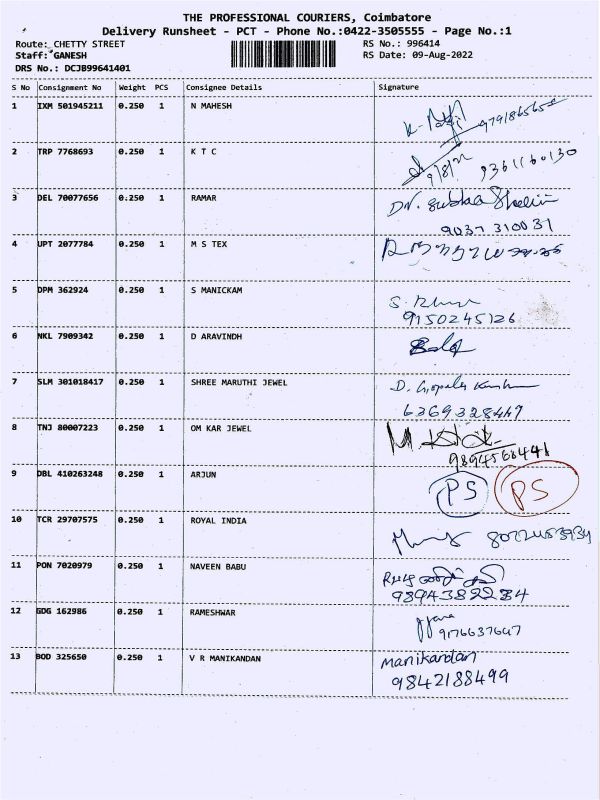 THE PROFESSIONAL COURIERS, Coimbatore
Delivery Runsheet - PCT - Phone No.:0422-3505555 - Page No.:1
Route: CHETTY STREET RS No.: 996414
Staff: GANESH RS Date: 09-Aug-2022
DRS No.: DCJB99641401
S No Consignment No Weight PCS Consignee Details Signature
1 IXM 501945211 0.250 1 N MAHESH
2 TRP 7768693 0.250 1 K T C
9361160130
3 DEL 70077656 0.250 1 RAMAR
9037310031
4 UPT 2077784 0.250 1 M S TEX
5 DPM 362924 0.250 1 S MANICKAM
9150245126
6 NKL 7909342 0.250 1 D ARAVINDH
7 SLM 301018417 0.250 1 SHREE MARUTHI JEWEL D. Gopala
6369328447
8 TNJ 80007223 0.250 1 OM KAR JEWEL
9894568441
9 DBL 410263248 0.250 1 ARJUN PS PS
10 TCR 29707575 0.250 1 ROYAL INDIA
11 PON 7020979 0.250 1 NAVEEN BABU
9894382284
12 GDG 162986 0.250 1 RAMESHWAR
9176637647
13 BOD 325650 0.250 1 V R MANIKANDAN Manikandan
9842188499